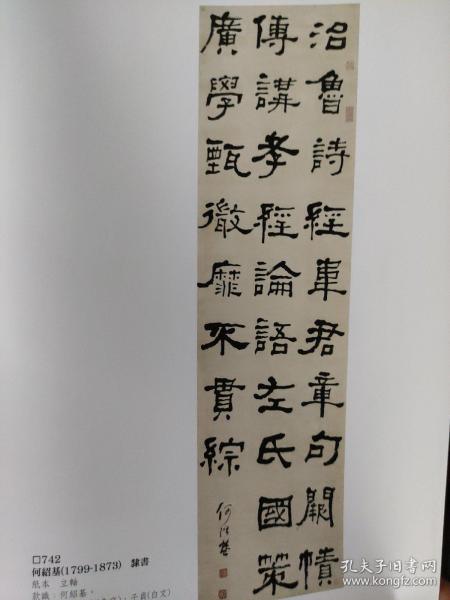 治魯詩經韋君章句闕幘
傳講孝經論語左氏國策
廣學甄徹靡不貫綜
何紹基
□742
何紹基(1799-1873) 隸書
紙本 立軸
款識：何紹基。
子貞(白文)
孔夫子旧书网